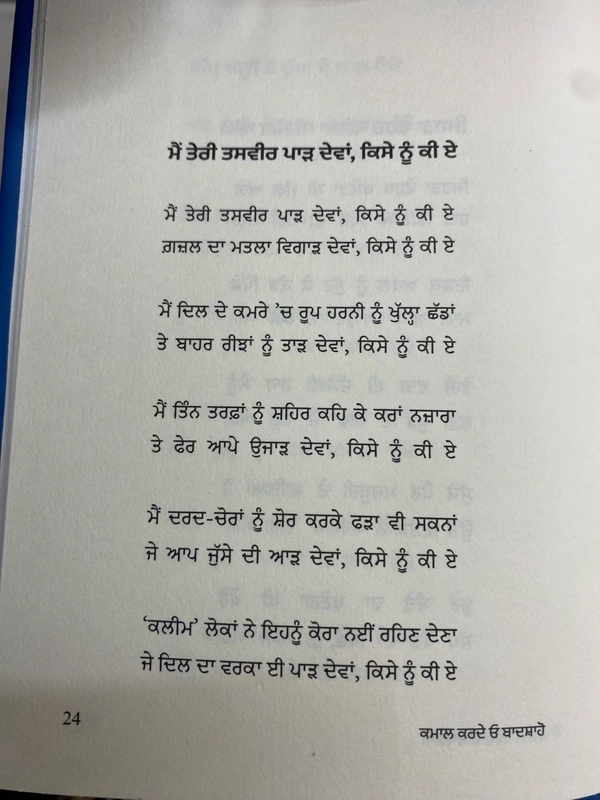 ਮੈਂ ਤੇਰੀ ਤਸਵੀਰ ਪਾੜ ਦੇਵਾਂ, ਕਿਸੇ ਨੂੰ ਕੀ ਏ
ਮੈਂ ਤੇਰੀ ਤਸਵੀਰ ਪਾੜ ਦੇਵਾਂ, ਕਿਸੇ ਨੂੰ ਕੀ ਏ
ਗ਼ਜ਼ਲ ਦਾ ਮਤਲਾ ਵਿਗਾੜ ਦੇਵਾਂ, ਕਿਸੇ ਨੂੰ ਕੀ ਏ
ਮੈਂ ਦਿਲ ਦੇ ਕਮਰੇ ’ਚ ਰੂਪ ਹਰਨੀ ਨੂੰ ਖੁੱਲ੍ਹਾ ਛੱਡਾਂ
ਤੇ ਬਾਹਰ ਰੀਝਾਂ ਨੂੰ ਤਾੜ ਦੇਵਾਂ, ਕਿਸੇ ਨੂੰ ਕੀ ਏ
ਮੈਂ ਤਿੰਨ ਤਰਫ਼ਾਂ ਨੂੰ ਸ਼ਹਿਰ ਕਹਿ ਕੇ ਕਰਾਂ ਨਜ਼ਾਰਾ
ਤੇ ਫੇਰ ਆਪੇ ਉਜਾੜ ਦੇਵਾਂ, ਕਿਸੇ ਨੂੰ ਕੀ ਏ
ਮੈਂ ਦਰਦ-ਚੋਰਾਂ ਨੂੰ ਸ਼ੋਰ ਕਰਕੇ ਫੜਾ ਵੀ ਸਕਨਾਂ
ਜੇ ਆਪ ਜੁੱਸੇ ਦੀ ਆੜ ਦੇਵਾਂ, ਕਿਸੇ ਨੂੰ ਕੀ ਏ
‘ਕਲੀਮ’ ਲੋਕਾਂ ਨੇ ਇਹਨੂੰ ਕੇਰਾ ਨਈਂ ਰਹਿਣ ਦੇਣਾ
ਜੇ ਦਿਲ ਦਾ ਵਰਕਾ ਈ ਪਾੜ ਦੇਵਾਂ, ਕਿਸੇ ਨੂੰ ਕੀ ਏ
24
ਕਮਾਲ ਕਰਦੇ ਓ ਬਾਦਸ਼ਾਹੋ